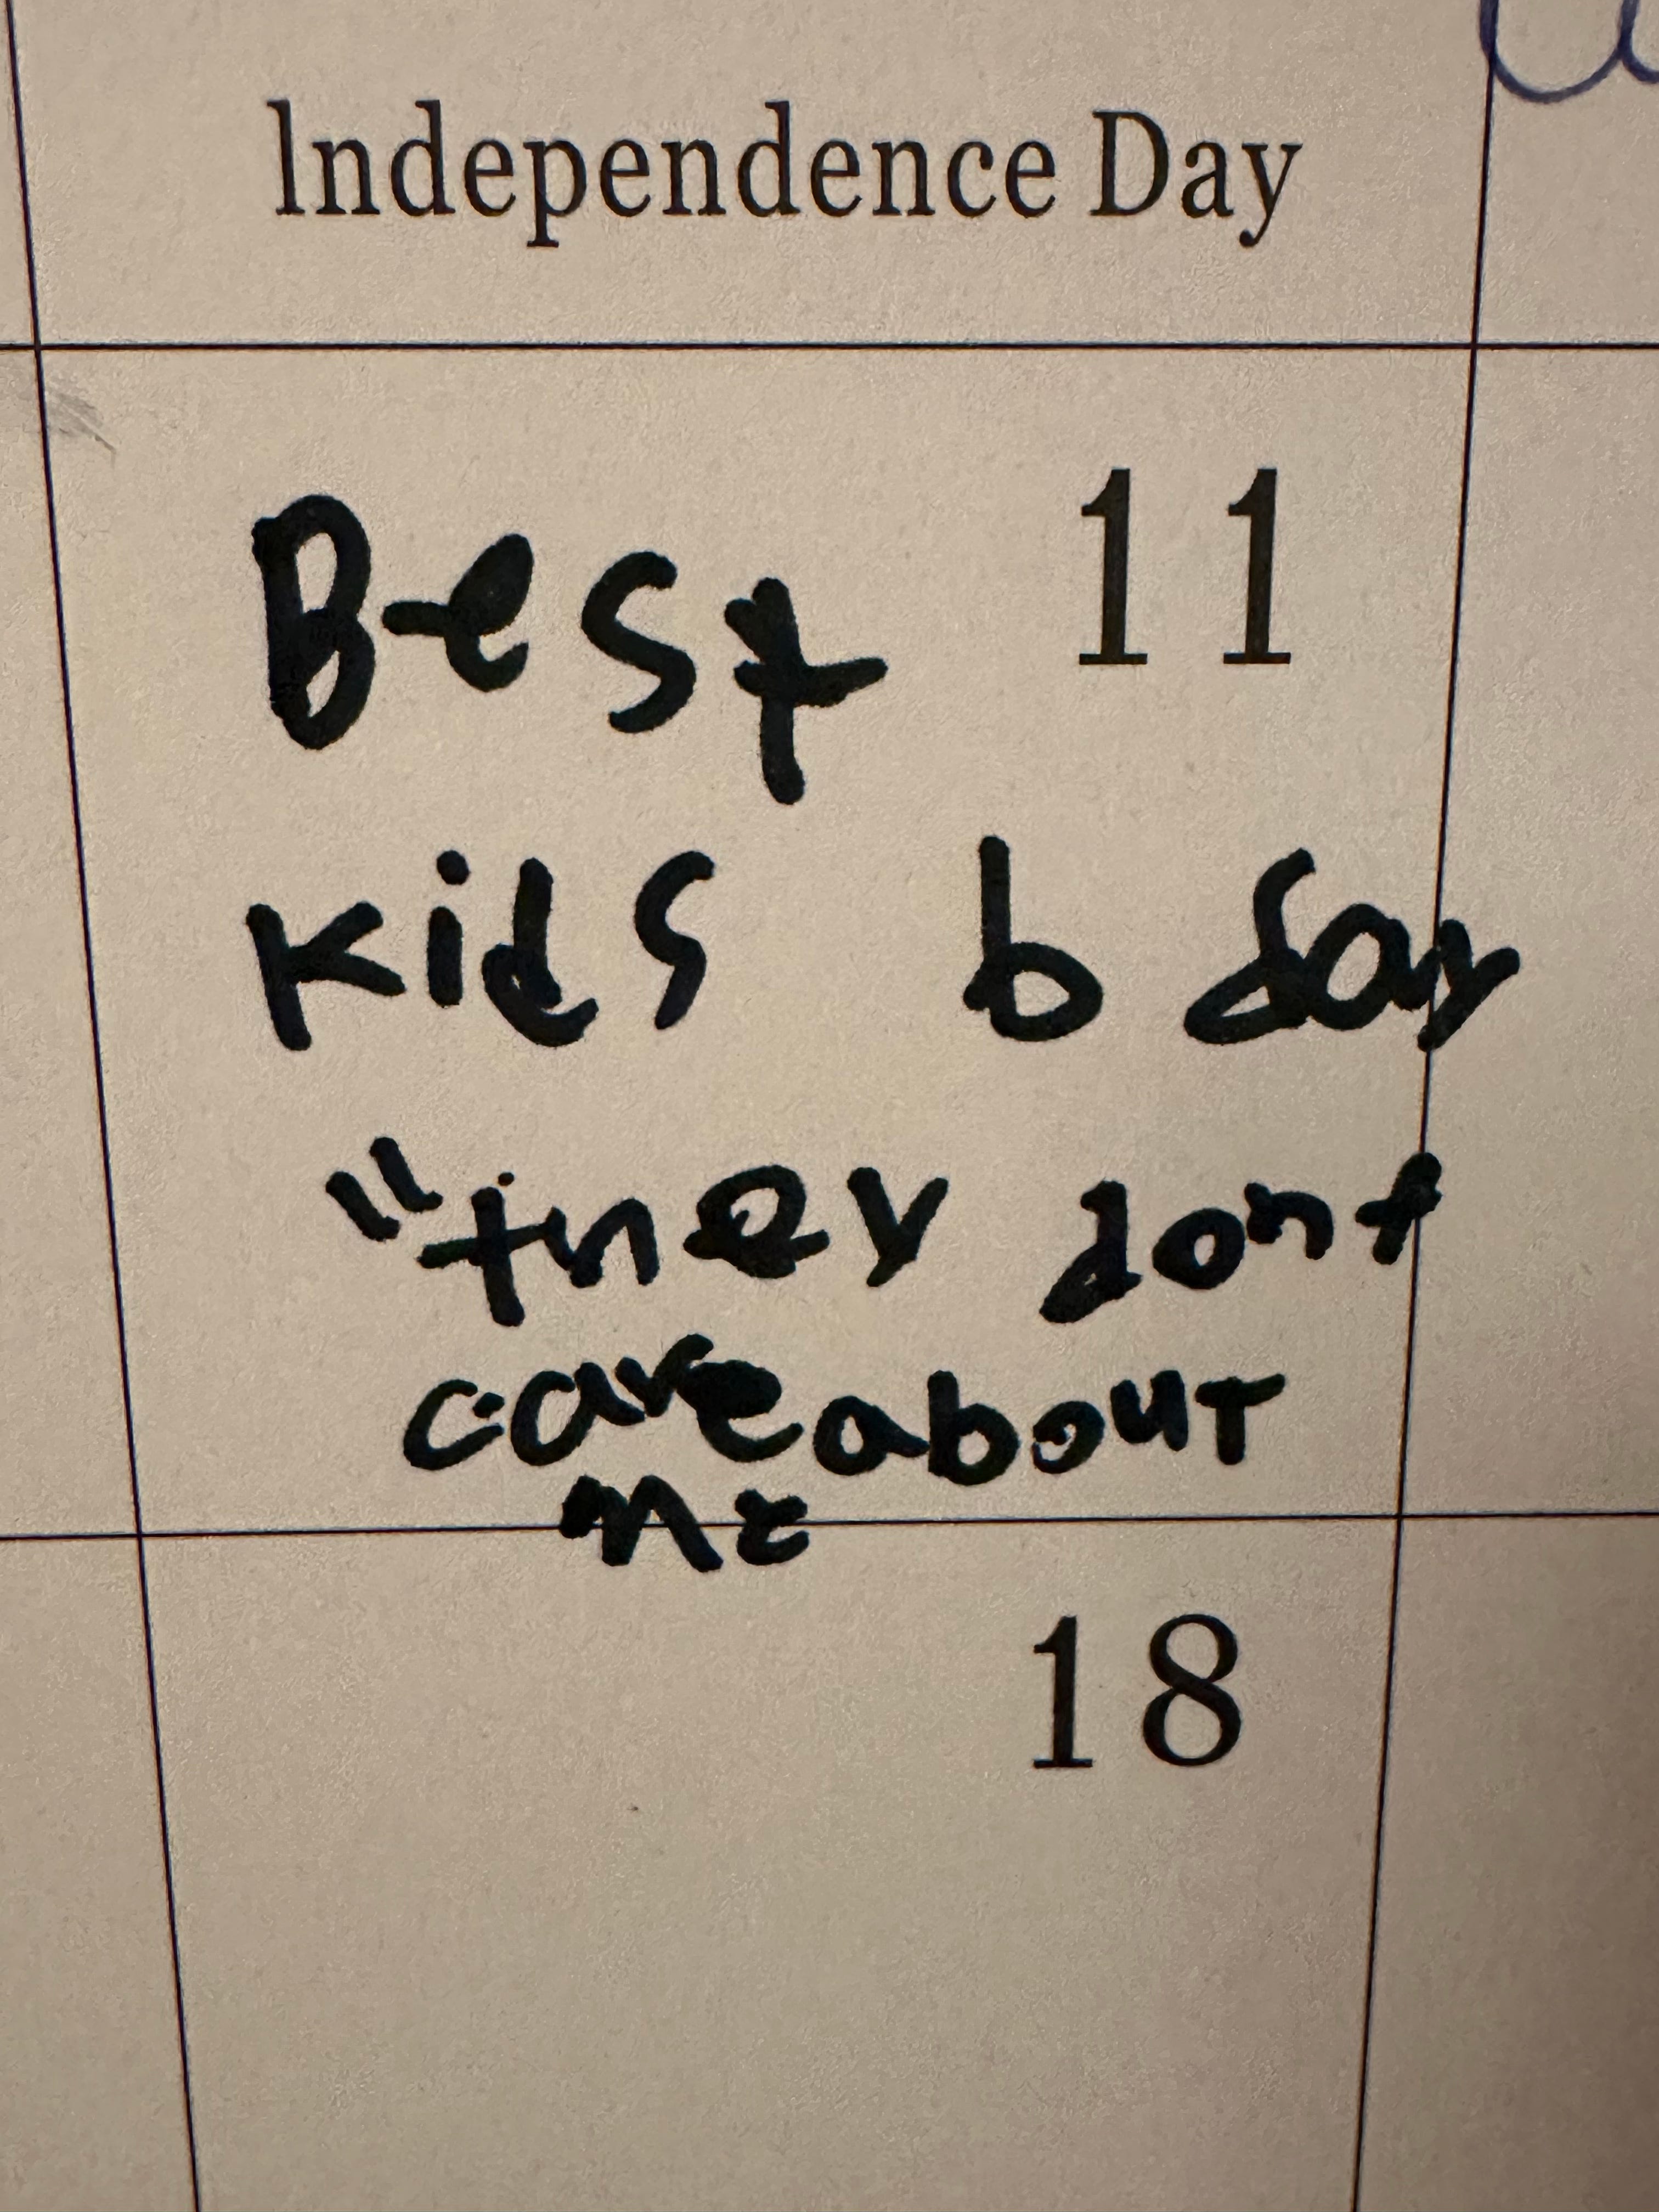 Independence Day
11
Best
kids b day
"they dont
care about
me
18